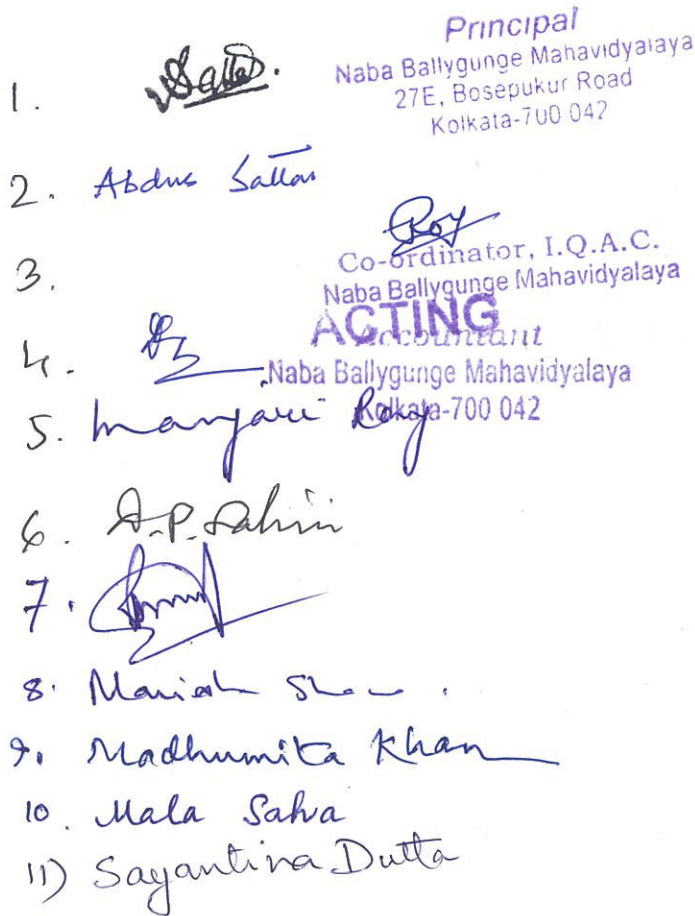 Principal
Naba Ballygunge Mahavidyalaya
27E, Bosepukur Road
Kolkata-700 042
1.
2. Abdus Sattar
Roy
Co-ordinator, I.Q.A.C.
Naba Ballygunge Mahavidyalaya
3.
ACTING
Accountant
4.
Naba Ballygunge Mahavidyalaya
Kolkata-700 042
5. Manjari Roy
6. A.P. Sahin
7.
8.
9. Madhumita Khan
10. Mala Saha
11) Sayantina Dutta